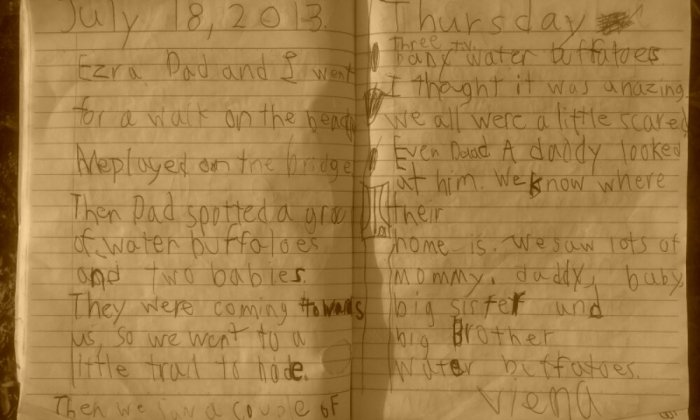 July 18, 2013.
Ezra. Dad and I went
for a walk on the beach
We played on the bridge
Then Dad spotted a grou
of water buffaloes
and two babies.
They were coming towards
us, so we went to a
little trail to hide.
Then we saw a couple of
Thursday
Three
baby water buffaloes
I thought it was amazing
we all were a little scared
Even Dad A daddy looked
at him. We know where
their
home is. We saw lots of
mommy, daddy, baby
big sister and
big Brother
water buffaloes.
Viena